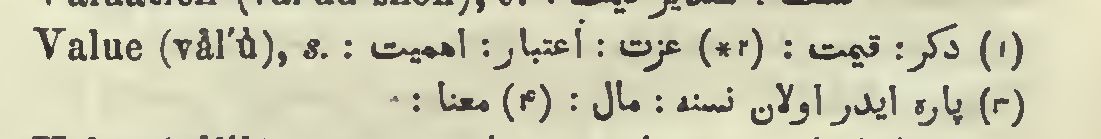 Value (vål′ů), s. : (۱) دكر : قيمت : (۲*) عزت : أعتبار : اهميت
(۳) پاره ايدر اولان نسنه : مال : (۴) معنا :